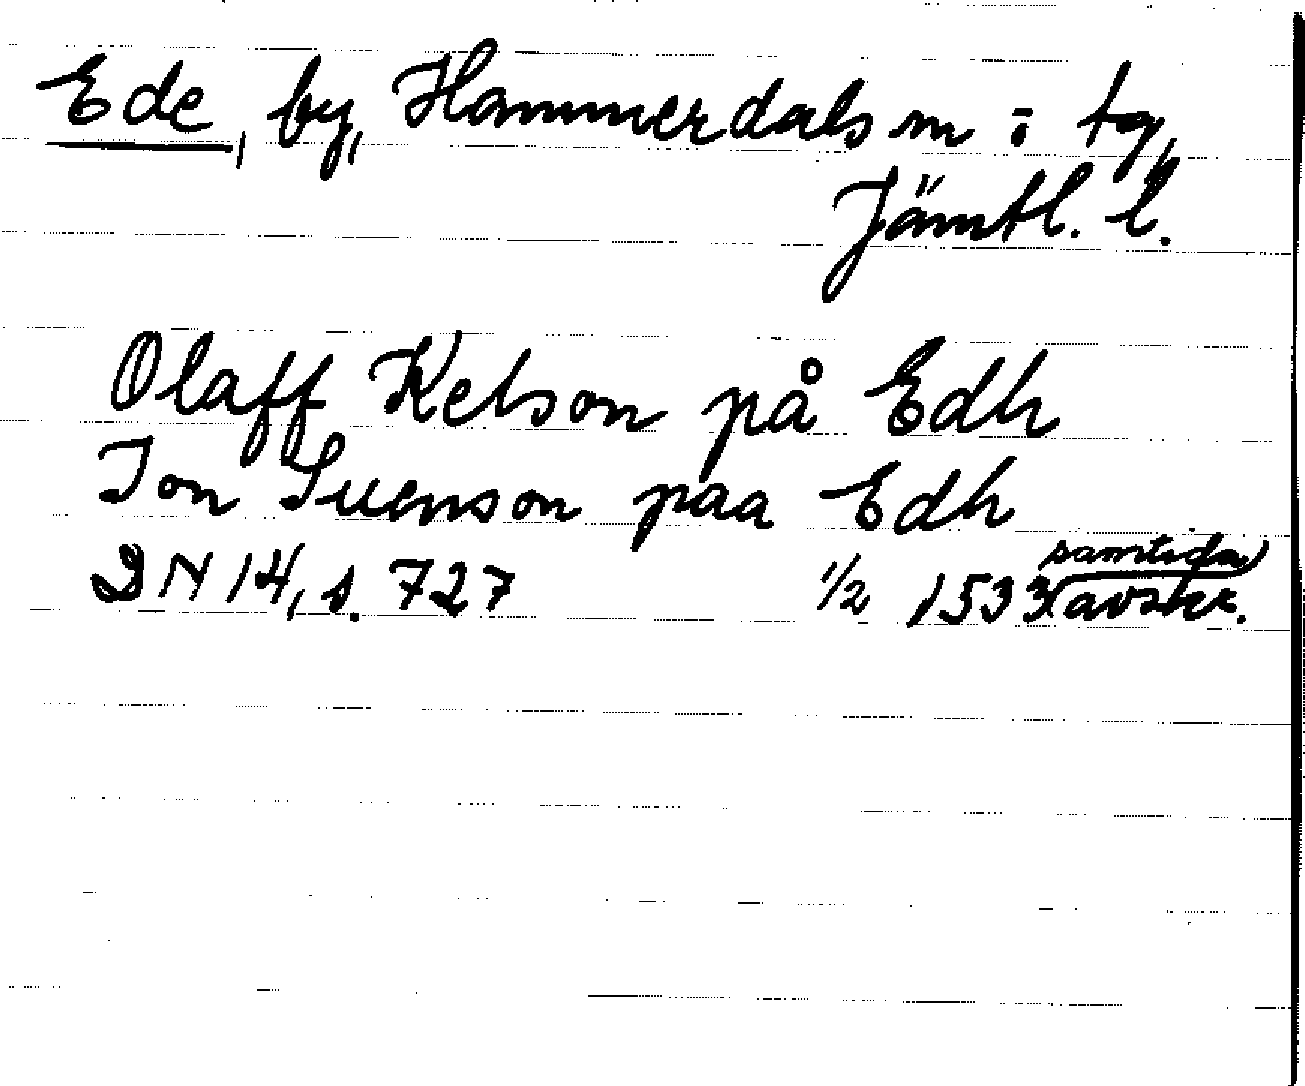 Ede, by, Hammerdals sn o tg,
Jämtl. l.
Olaff Kelson på Edh
Jon Suenson paa Edh
DN 14, s. 727 1/2 1533 (samtida avskr.)